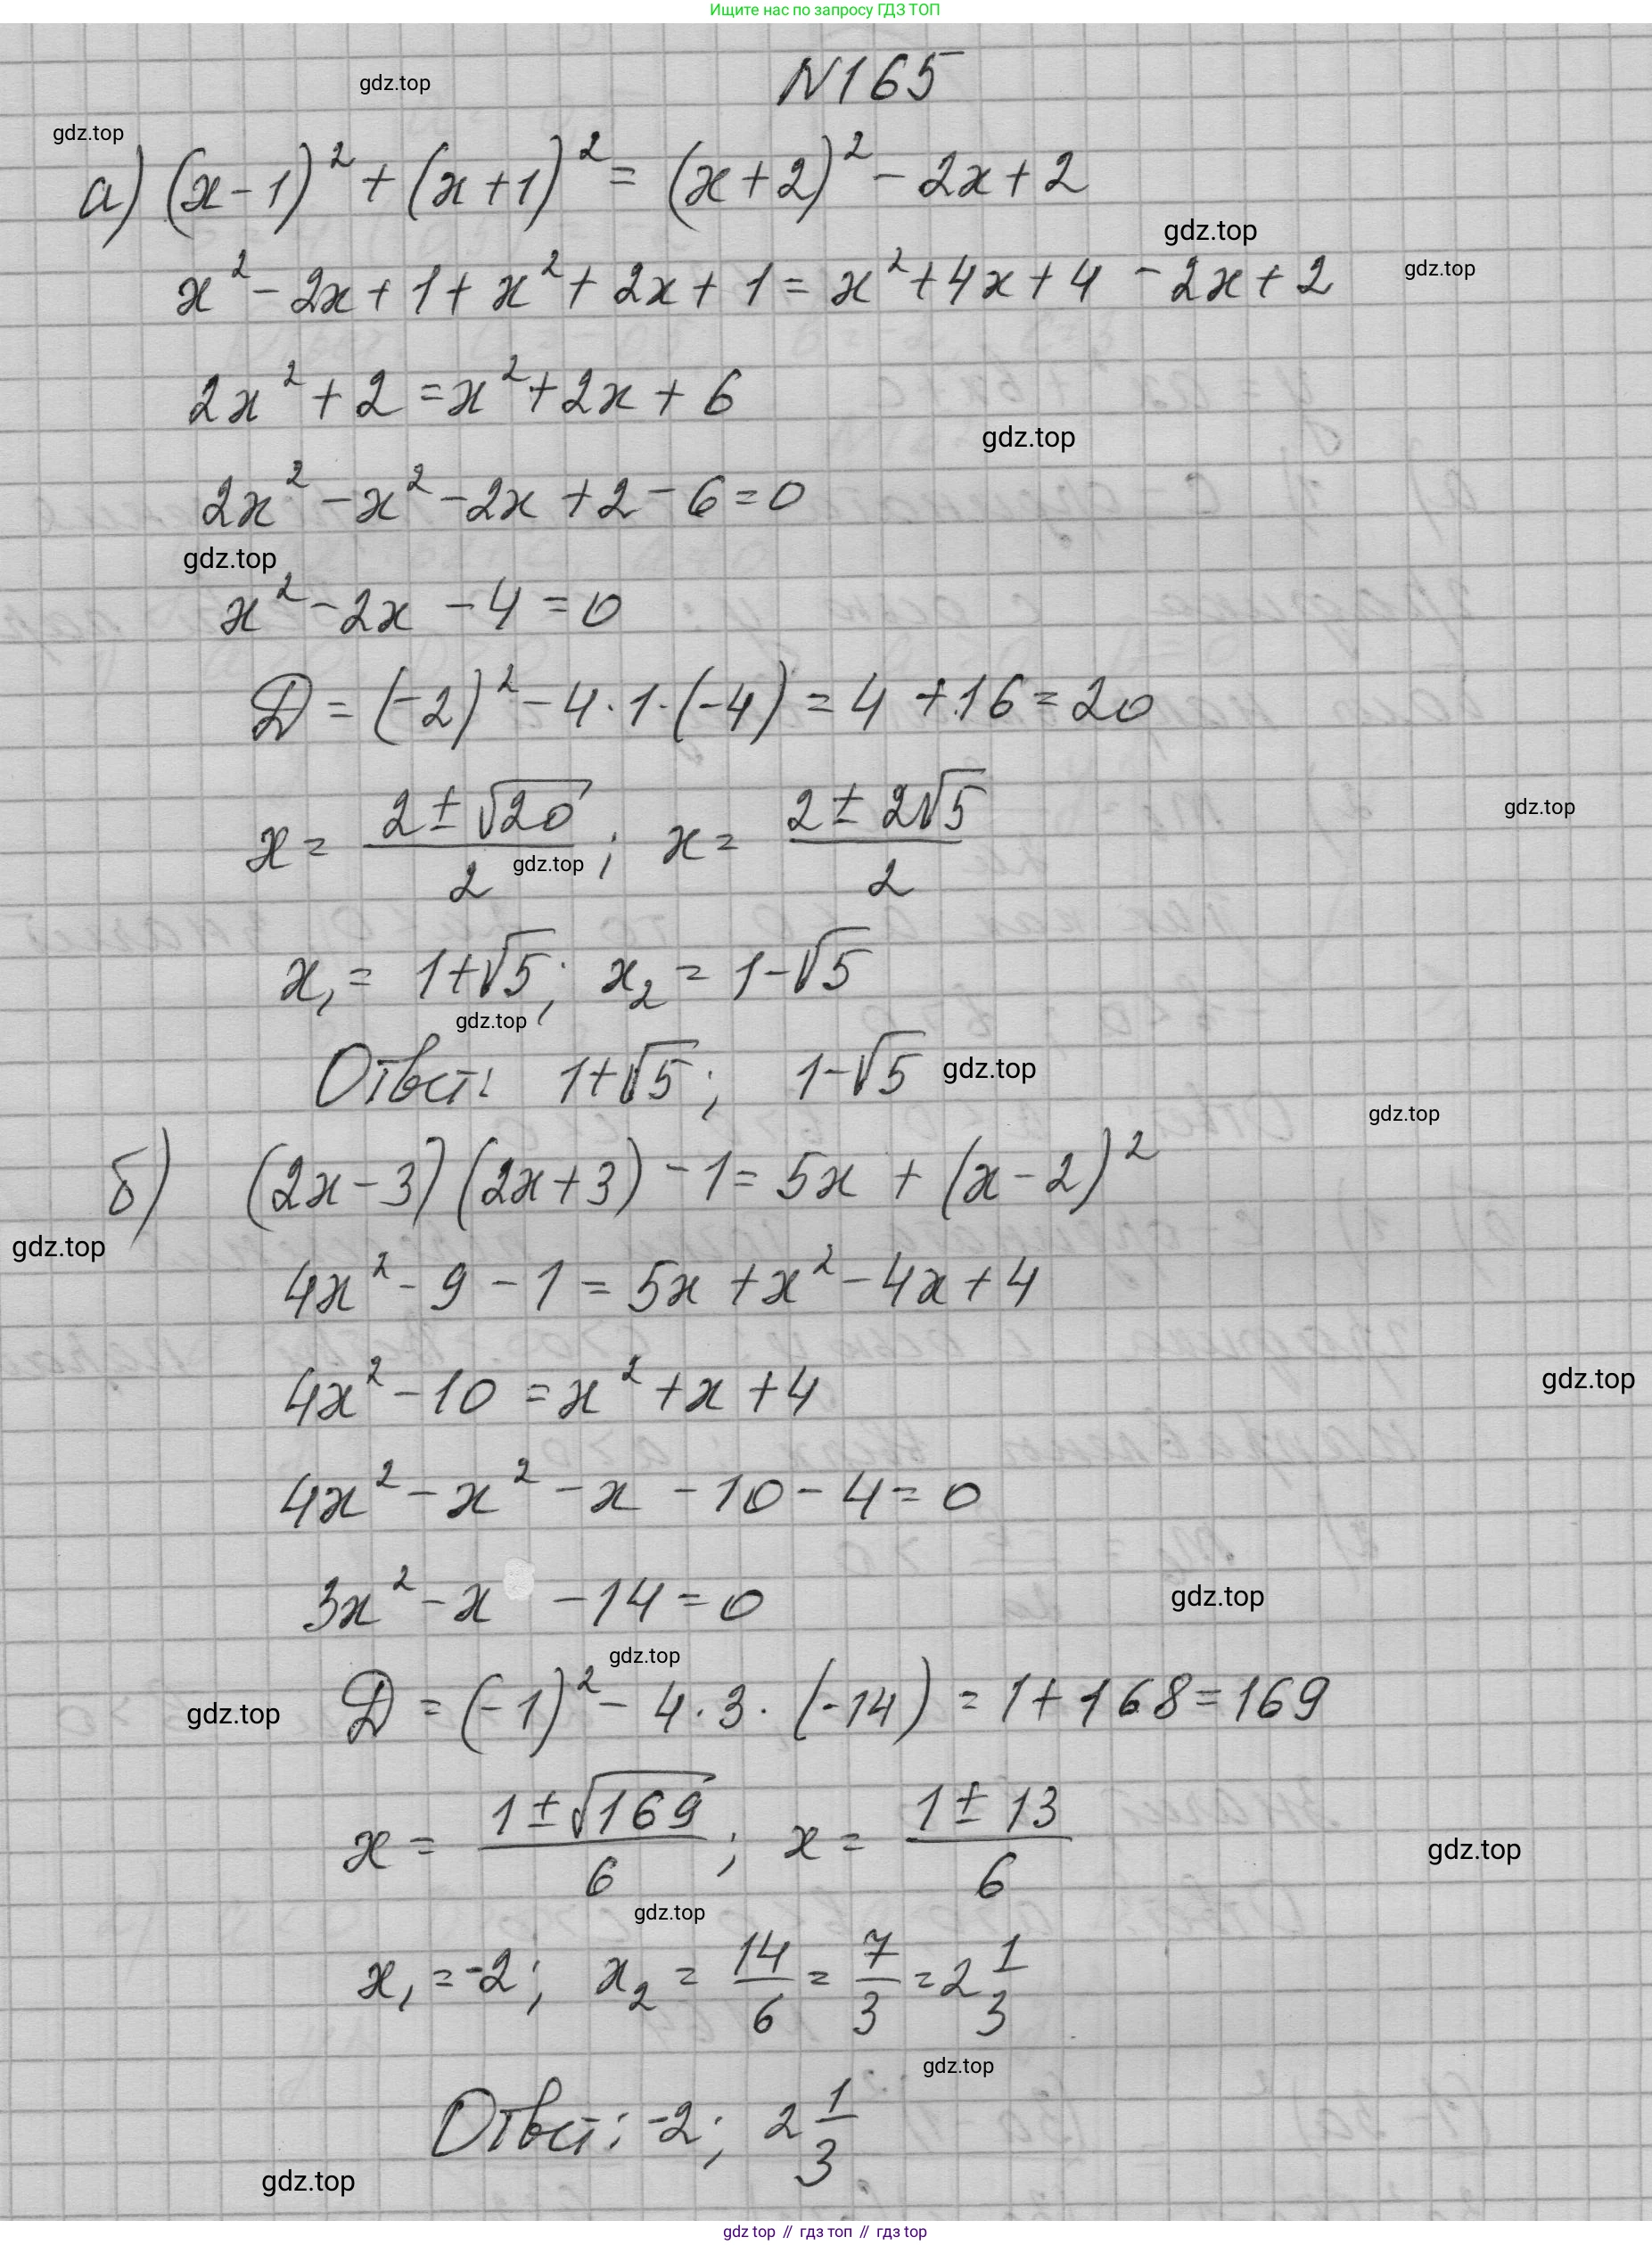 Ищите нас по запросу ГДЗ ТОП
N165
gdz.top
gdz.top
а) (x-1)² + (x+1)² = (x+2)² - 2x + 2
gdz.top
x² - 2x + 1 + x² + 2x + 1 = x² + 4x + 4 - 2x + 2
gdz.top
2x² + 2 = x² + 2x + 6
gdz.top
2x² - x² - 2x + 2 - 6 = 0
gdz.top
x² - 2x - 4 = 0
D = (-2)² - 4·1·(-4) = 4 + 16 = 20
x = (2 ± √20)/2; x = (2 ± 2√5)/2
gdz.top
gdz.top
x₁ = 1+√5; x₂ = 1-√5
gdz.top
Ответ: 1+√5; 1-√5
gdz.top
gdz.top
б) (2x-3)(2x+3) - 1 = 5x + (x-2)²
gdz.top
4x² - 9 - 1 = 5x + x² - 4x + 4
4x² - 10 = x² + x + 4
gdz.top
4x² - x² - x - 10 - 4 = 0
3x² - x - 14 = 0
gdz.top
gdz.top
D = (-1)² - 4·3·(-14) = 1 + 168 = 169
gdz.top
x = (1 ± √169)/6; x = (1 ± 13)/6
gdz.top
gdz.top
x₁ = -2; x₂ = 14/6 = 7/3 = 2 1/3
gdz.top
Ответ: -2; 2 1/3
gdz.top
gdz top // гдз топ // гдз top